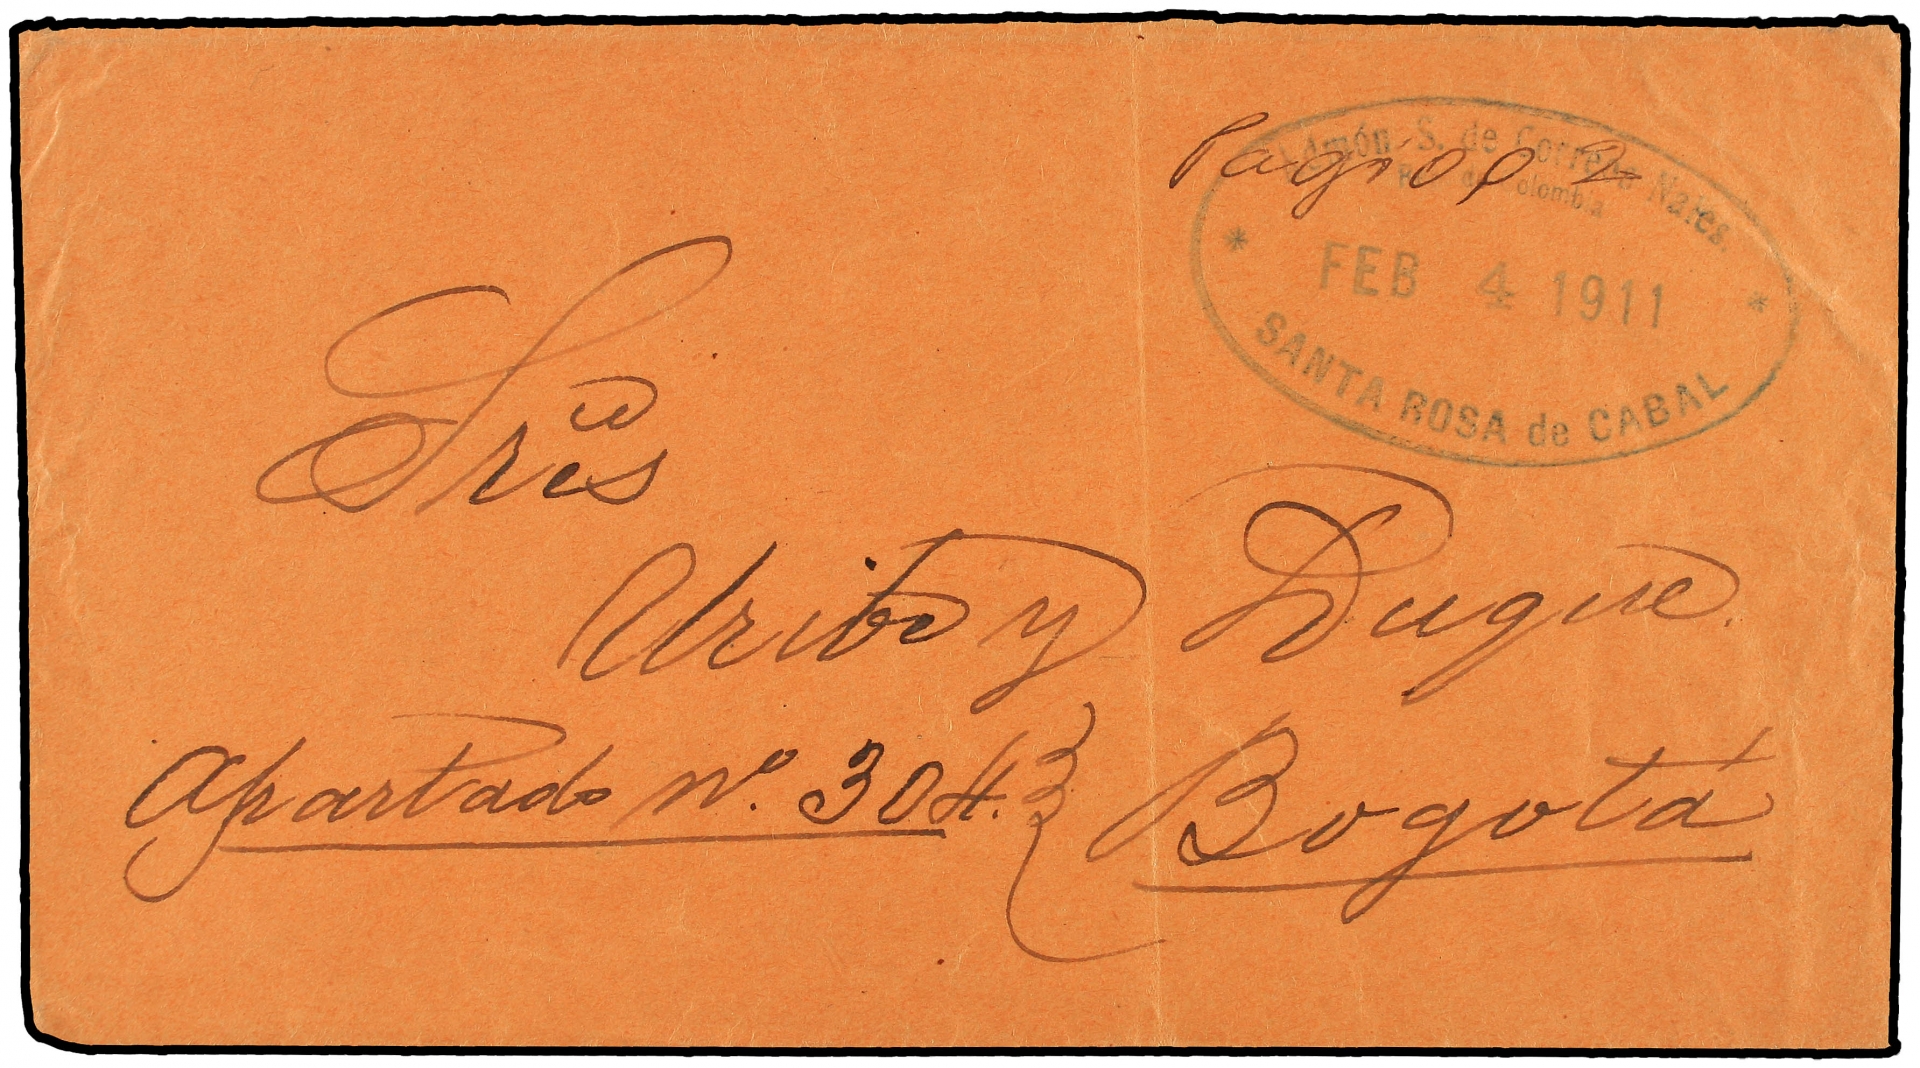 Pagó 0,02
Admón S. de Correos Nales.
Rep. de Colombia
* FEB 4 1911 *
SANTA ROSA de CABAL
Sres
Uribe y Duque.
Apartado nº. 304.
Bogotá